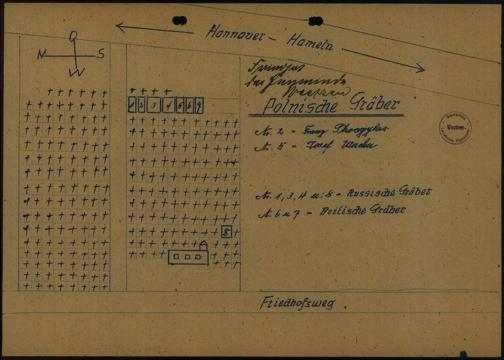 Hannover – Hameln
O
N S
W
der Gemeinde
Polnische Gräber
Nr. 2 – Franz
Nr. 5 – Josef
Nr. 1, 3, 4 u. 8 – Russische Gräber
Nr. 6 u 7 – Britische Gräber
1 2 3 4 5 6 7
8
Friedhofsweg